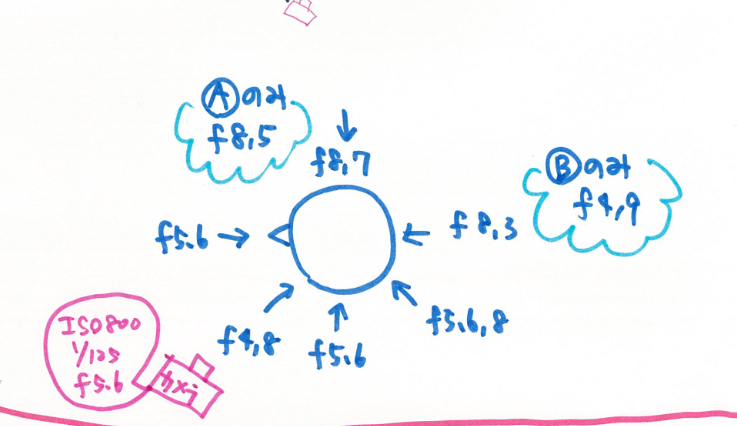 Aのみ
f8,5
f8,7
Bのみ
f4,9
f5.6
f8,3
f4,8
f5.6
f5.6,8
ISO800
1/125
f5.6
カメラ